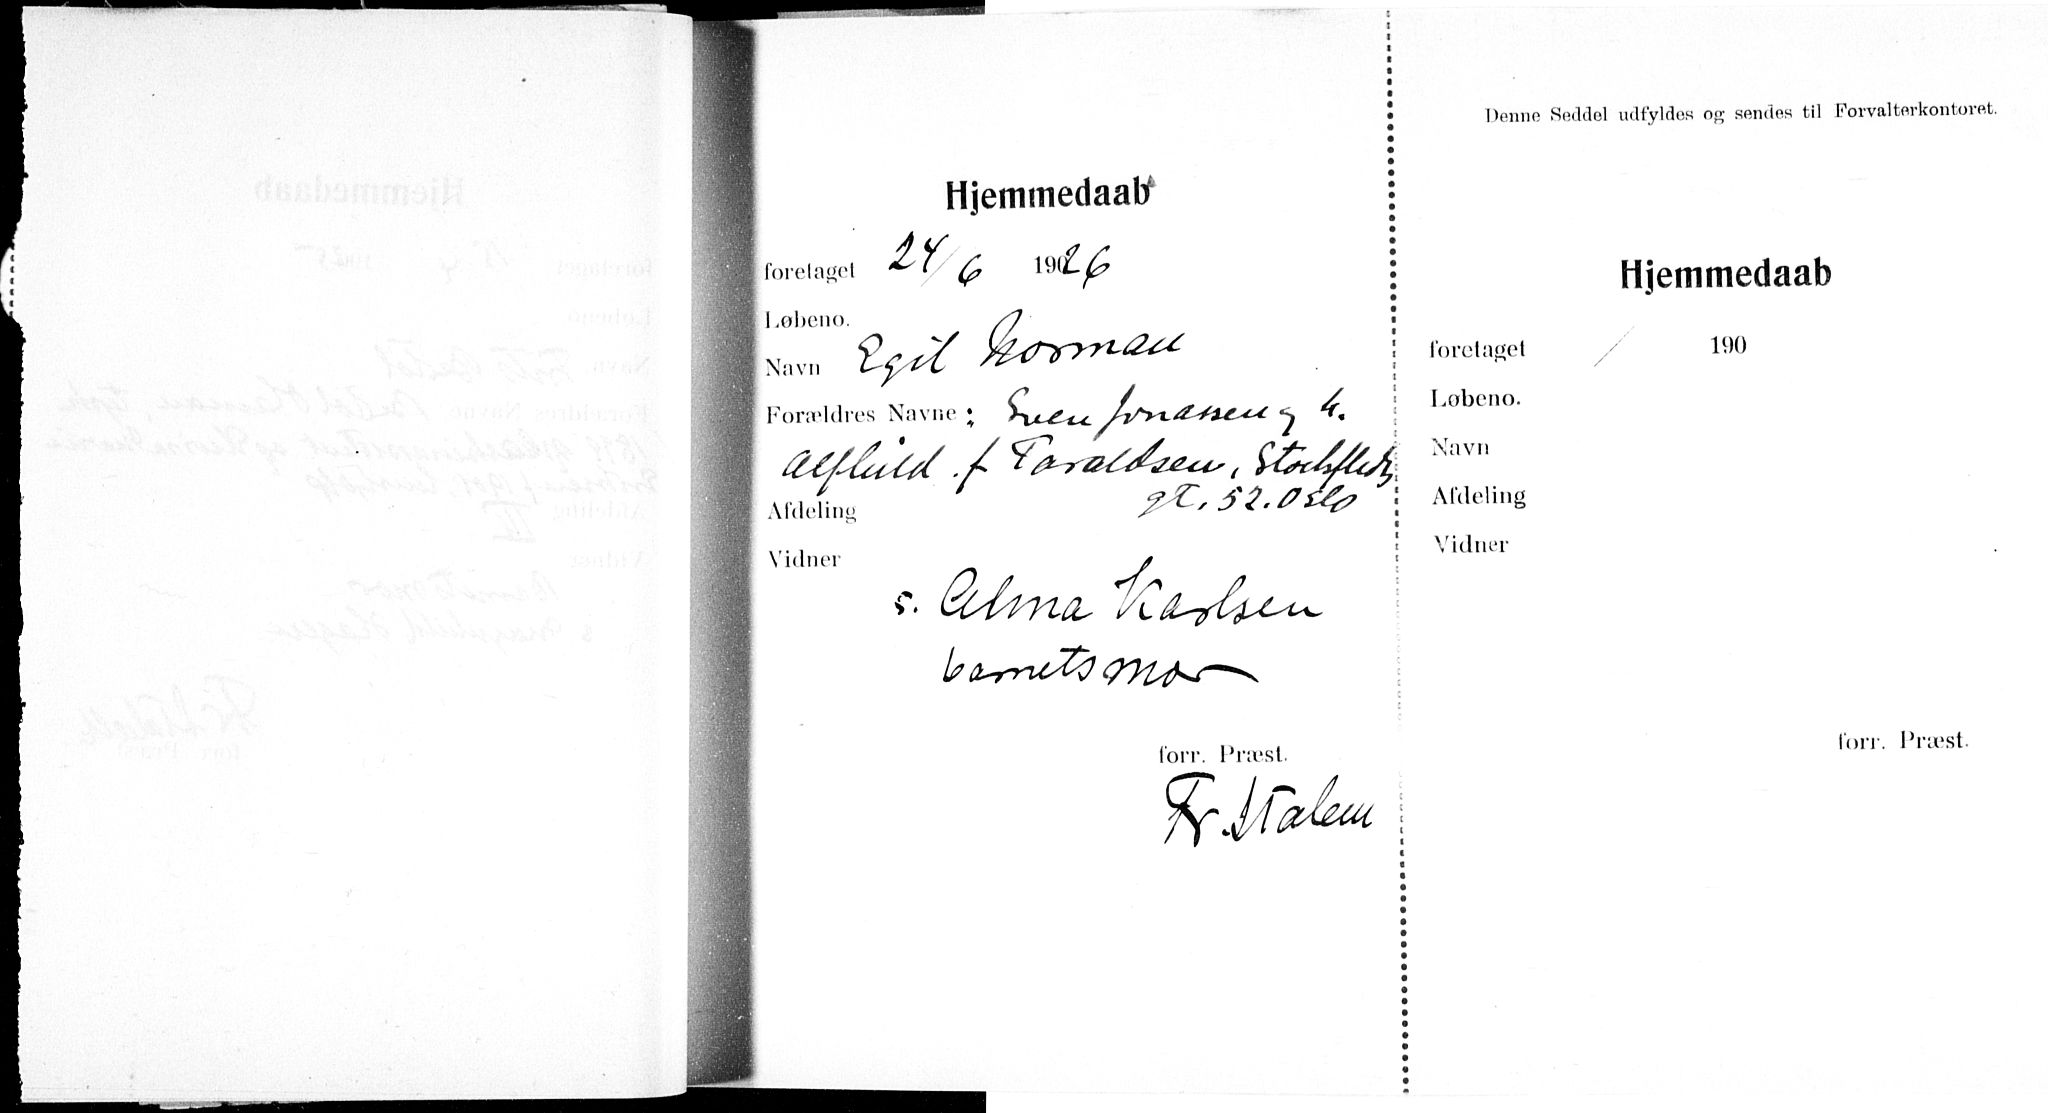 Hjemmedaab
foretaget 24/6 1926
Løbeno.
Navn Egil Norman
Forældres Navne: Sven Jonassen og h.
Alfhild f Taraldsen, Stockfleths
gt. 52. Oslo
Afdeling
Vidner
s. Alma Karlsen
barnets mor
forr. Præst.
Fr. Stalem
Denne Seddel udfyldes og sendes til Forvalterkontoret.
Hjemmedaab
foretaget / 190
Løbeno.
Navn
Afdeling
Vidner
forr. Præst.